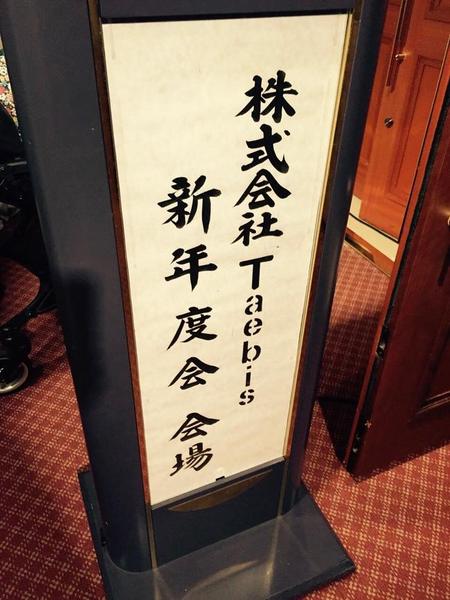 株式会社 Taebis
新年度会 会場